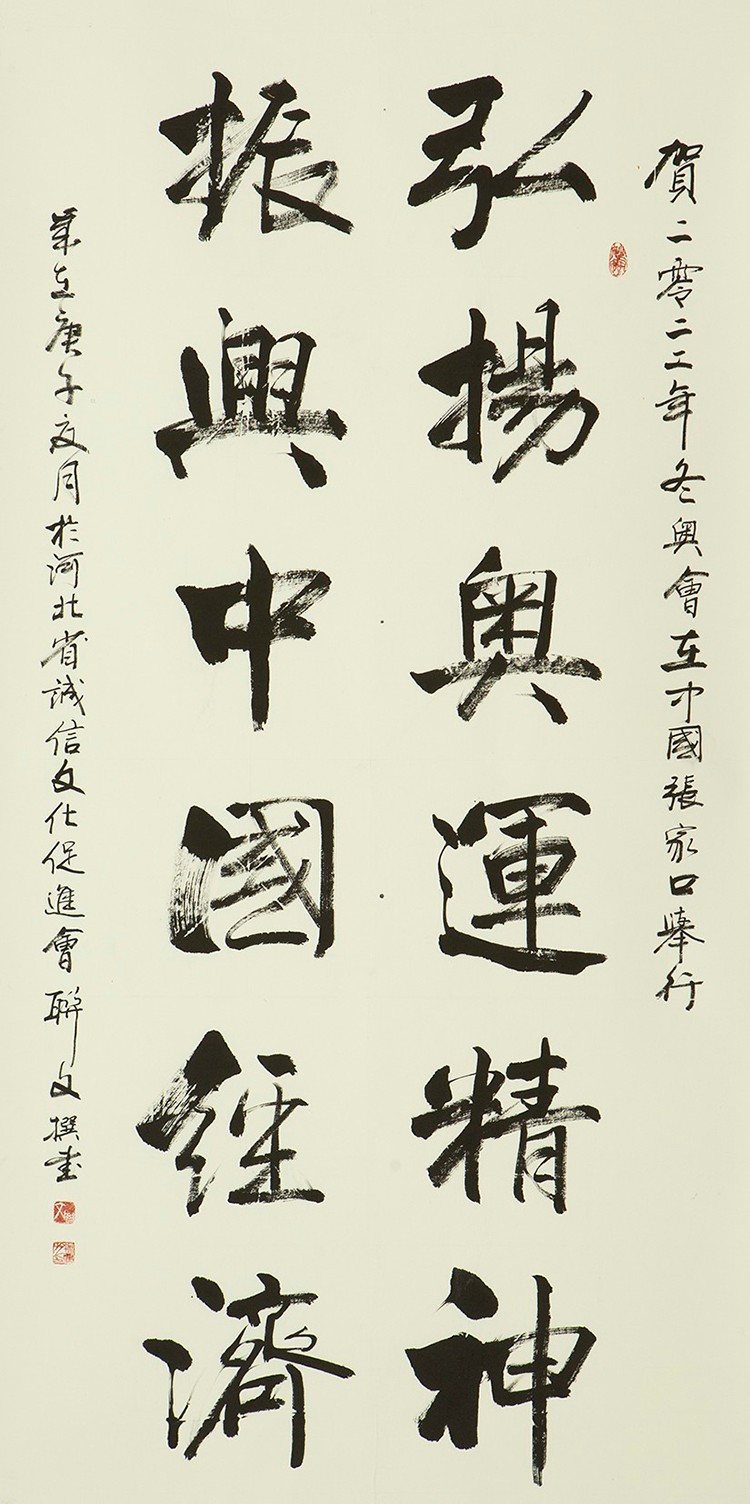 賀二零二二年冬奧會在中國張家口舉行
弘揚奧運精神
振興中國經濟
歲在庚子夏月於河北省誠信文化促進會聯文撰書